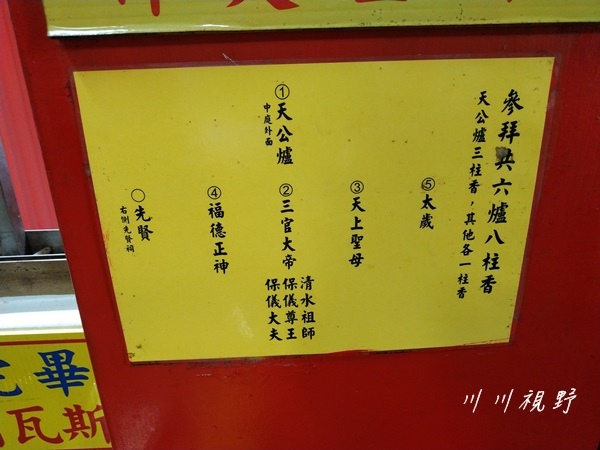 參拜共六爐八柱香
天公爐三柱香，其他各一柱香
⑤太歲
③天上聖母
②三官大帝
清水祖師
保儀尊王
保儀大夫
①天公爐
中庭外面
④福德正神
○先賢
右側先賢祠
畢
瓦斯
川川視野